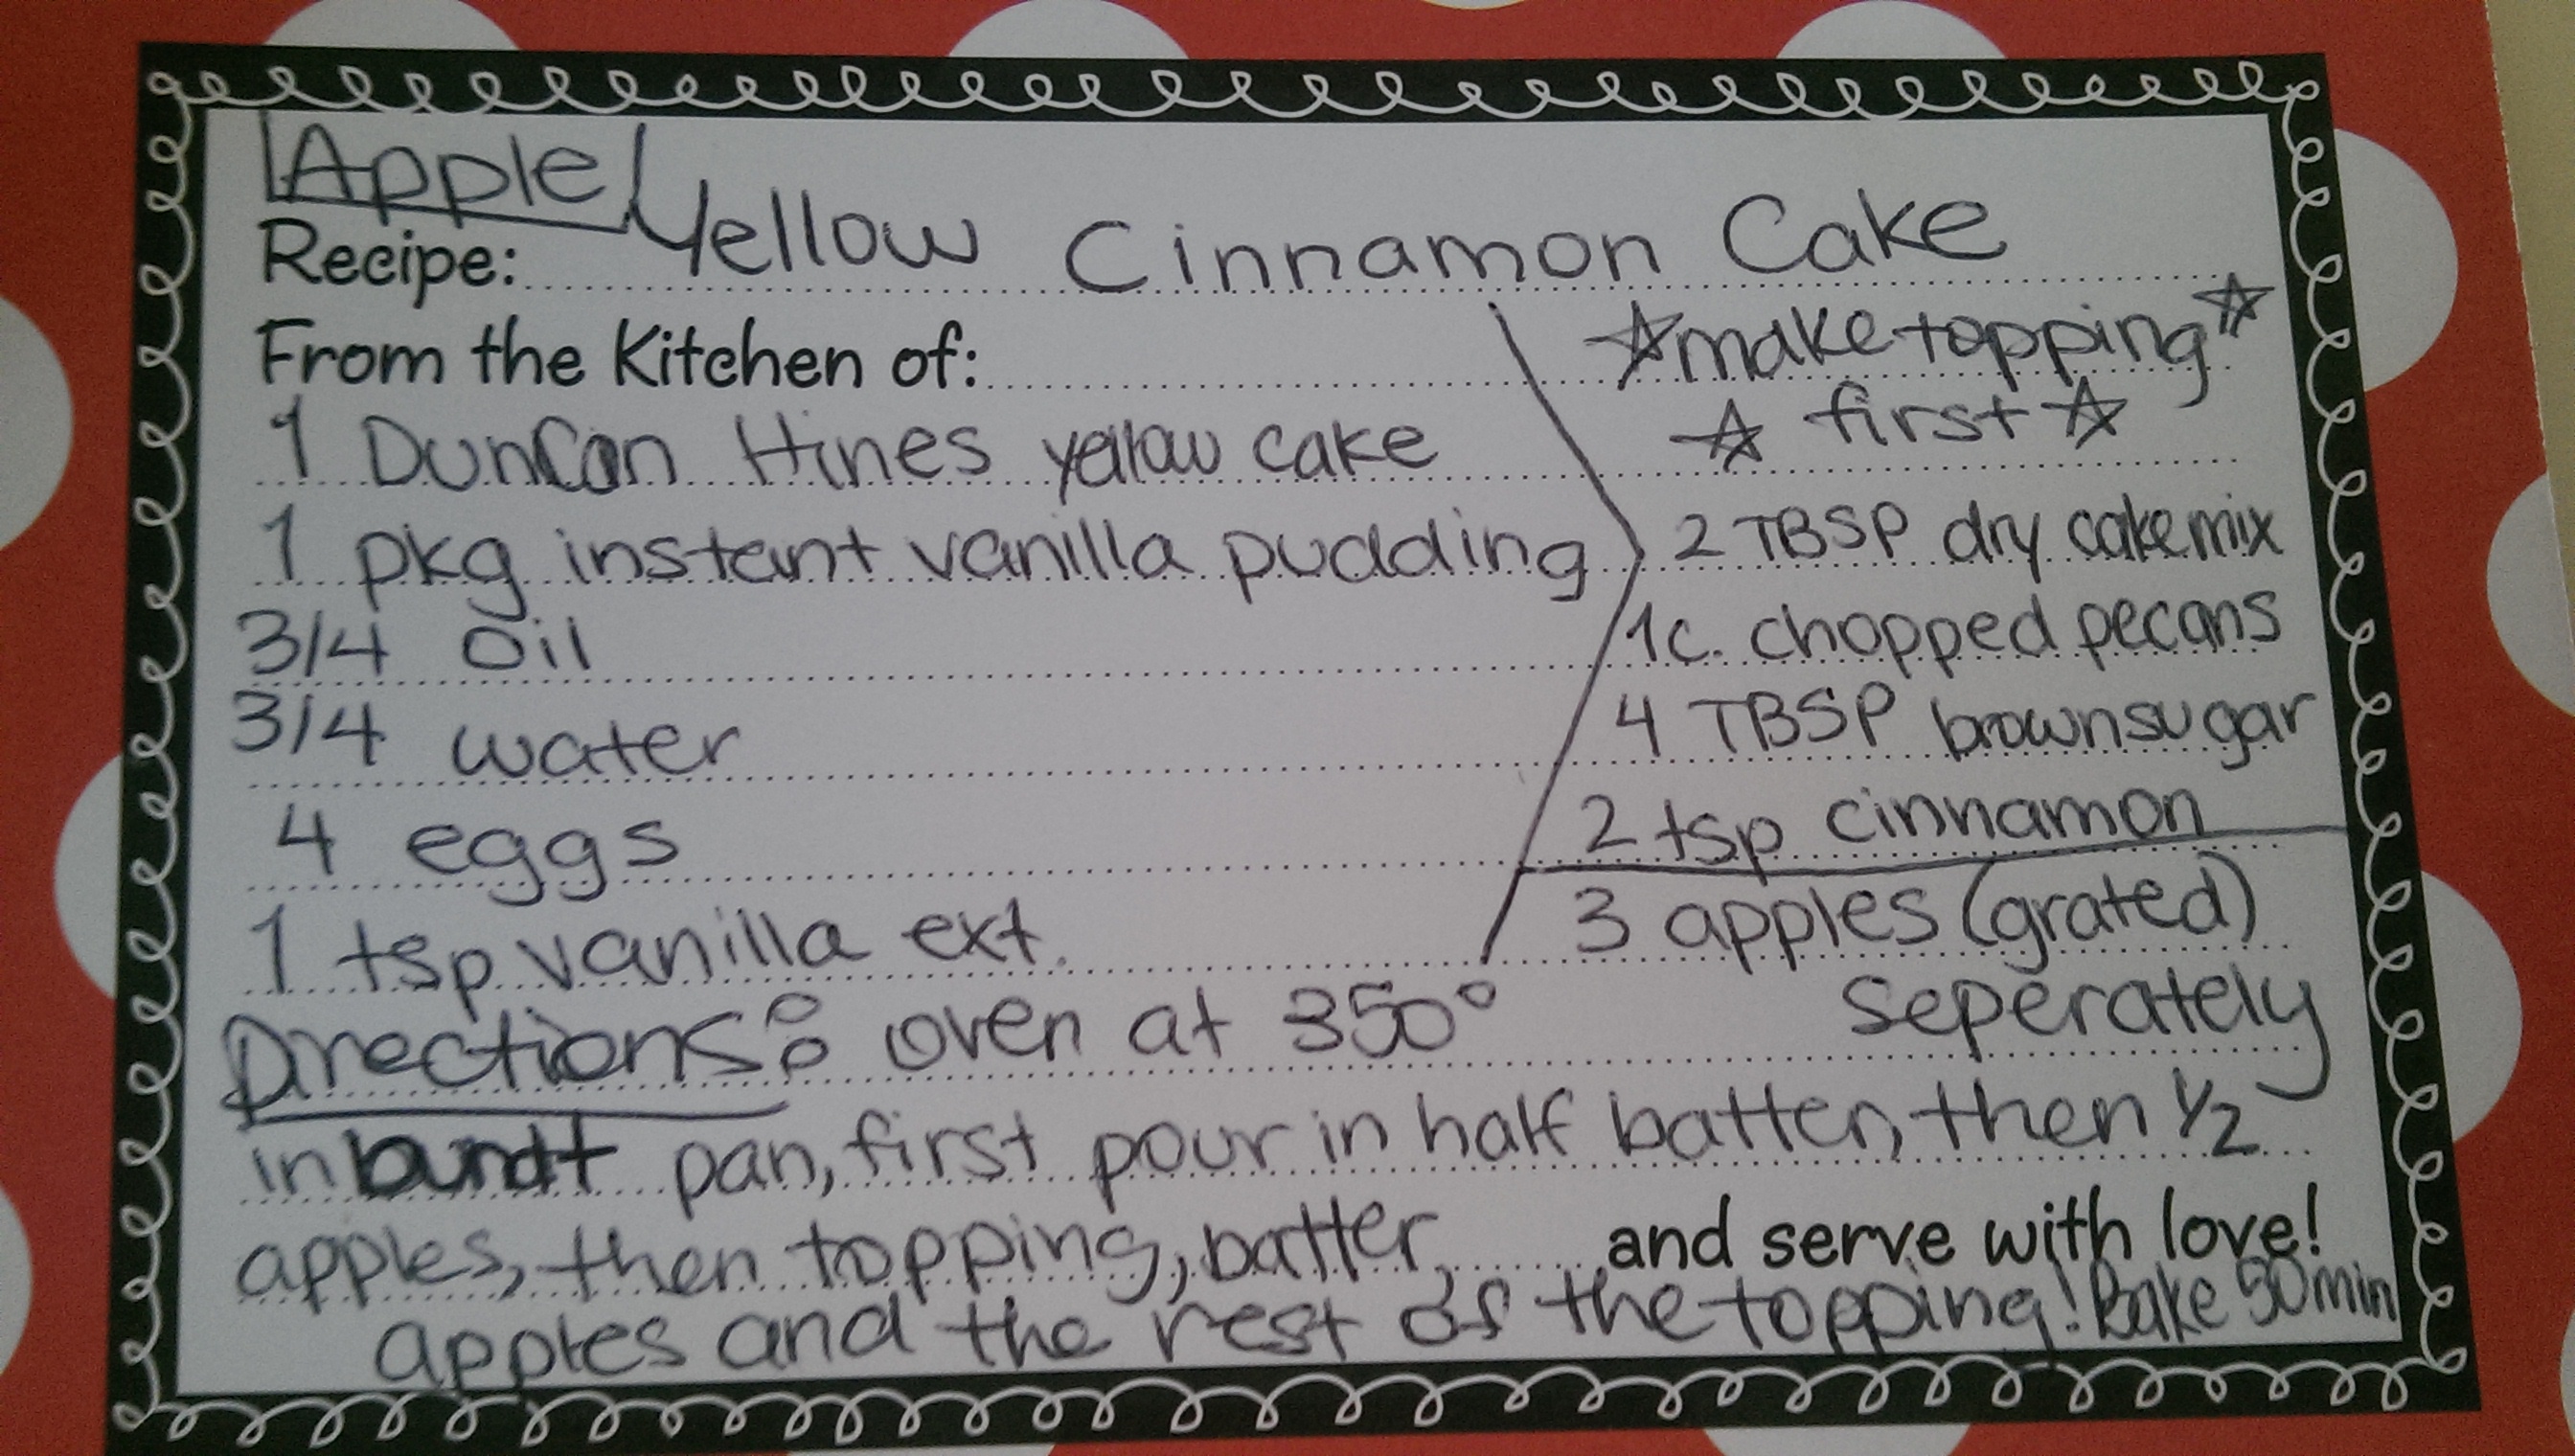 Apple
Recipe: Yellow Cinnamon Cake
From the Kitchen of:
1 Duncan Hines yellow cake
1 pkg instant vanilla pudding
3/4 oil
3/4 water
4 eggs
1 tsp vanilla ext.
☆make topping☆
☆ first ☆
2 TBSP dry cake mix
1c. chopped pecans
4 TBSP brown sugar
2 tsp cinnamon
3 apples (grated)
seperately
Directions: oven at 350°
in bundt pan, first pour in half batter, then 1/2
apples, then topping, batter, and serve with love!
apples and the rest of the topping! Bake 50 min